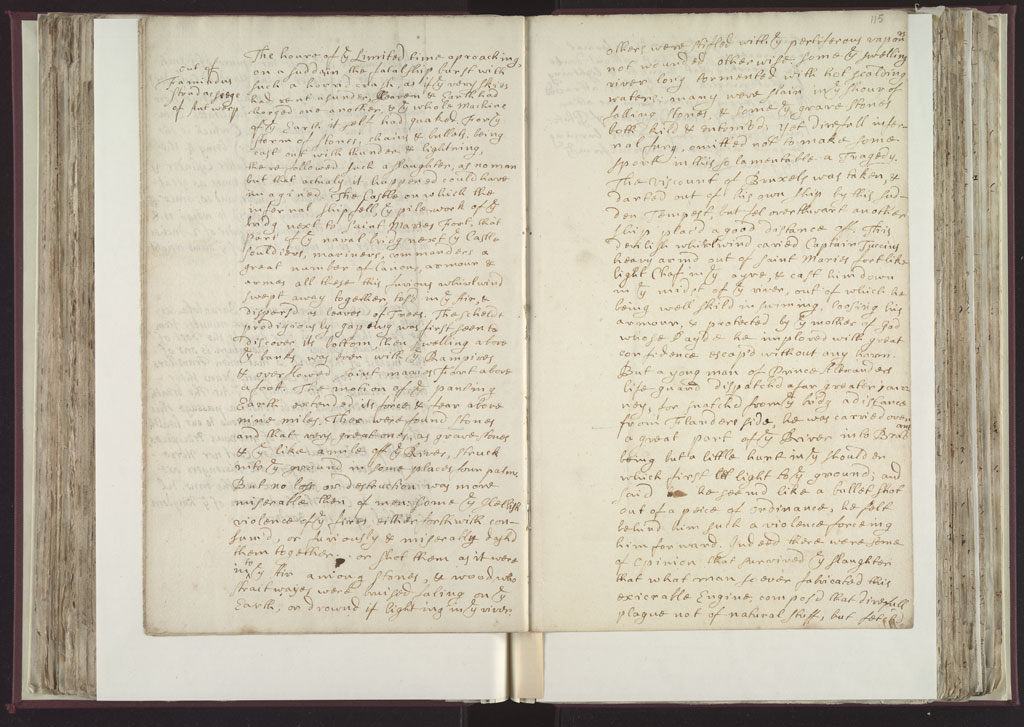 out of
Famianus
Strada seege
of Antwerp
The houre of ye Limited time approaching,
on a suddain the fatal ship burst with
such a horrid crash, as if ye very skies
had rent asunder, heaven & Earth had
charged one another, & ye whole Machine
of ye Earth it self had quaked. For ye
storm of stones, chains & bullets, being
cast out with thunder & lightning,
there followed such a slaughter, as no man
but that actualy it happened could have
imagined. The Castle on which the
infernal ship fell, ye pile-work of ye
bridg next to Saint Maries Foort, that
part of ye naval bridg next ye Castle
souldiers, mariners, commanders a
great number of canons, armour &
armes all these this furious whirlwind
swept away together, tosd in ye Air, &
dispersd as leaves of Trees. The scheldt
prodigiously gaping was first seen to
discover its bottom, then swelling above
ye banks was even with ye Rampires
& overflowed saint maries Foort above
a foot. The motion of ye panting
Earth extended its force & fear above
nine miles. There were found stones
and that very great ones, as grave stones
& ye like a mile off ye River, struck
into ye ground in some places four palms
But no loss or destruction was more
miserable then of men: some ye Hellish
violence of ye fires either forthwith con-
sumd, or furiously & miseraly dashd
them together, or shot them as it were
into ye Air among stones, & wood, who
strait wayes were bruised faling on ye
Earth, or drownd if lighting in ye river
115
others were stifled with ye pestiferous vapour
not wounded otherwise. some ye swelling
river long tormented with hot scalding
waters: many were slain in ye shour of
falling stones, & some ye grave stones
both kild & entombd; yet direfull infer-
nal fury, omitted not to make some
sport in this so lamentable a Tragedy.
The Viscount of Bruxels was taken, &
darted out of his own ship by this sud-
den Tempest, but fel overthwart another
ship placd a good distance of. This
devilish whirlwind caried Captain Tuccius
heavy armd out of Saint Maries fort like
light Chaf in ye ayre, & cast him down
in ye midst of ye river, out of which he
being well skild in swiming, loosing his
armour, & protected by ye mother of god
whose hayde he implored with great
confidence escap'd without any harm.
But a young man of Prince Alexanders
life guard dispatchd a far greater jour-
ney, for snatchd from ye bridg a distance
from Flanders side, he was carried over
a great part of ye River into Brabant
being but a little hurt in ye shoulder
which first light to ye ground; and
said he seemd like a bullet shot
out of a peice of ordinance, he felt
behind him such a violence forceing
him forward. Indeed there were some
of opinion that survived ye slaughter
that what man soever fabricated this
execrable Engine, composd that direfull
plague not of natural stuff, but